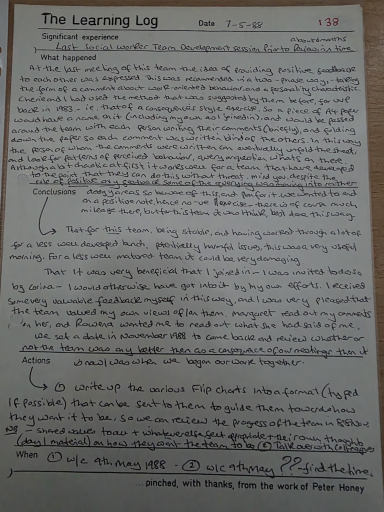 The Learning Log Date 7-5-88 138
Significant experience
Last Social Worker Team Development session Prior to Review in time
What happened
At the last meeting of this team the idea of providing positive feedback
to each other was expressed. This was recommended in a two-phase way, - taking
the form of a comment about work-oriented behaviour and a personality characteristic.
and I had used the method that was suggested by them before, for
back in 1983 - i.e. that of a consequences style exercise. So a piece of A4 paper
would have a name on it (including my own as I joined in), and would be passed
around the team with each person writing their comments (briefly), and folding
down the paper so each comment was written blind of the others. In this way
the person of whom the comments were written can eventually unfold the sheet,
and look for patterns of perceived behaviour, query what's on there.
Although a bit at first it works well for a team that have developed
to the point that they can do this without threat, mind you, despite the
of positive any feedback some of the querying was moving into rather
Conclusions deep so beware of this, and pan for it we wanted to end
on a positive note, hence no -ve - there is of course much
mileage there, but for this team it was I think, best done this way.
That for this team, being stable, and having worked through a lot of
for a less well developed bunch, potentially harmful issues, this was a very useful
morning. For a less well matured team it could be very damaging
That it was very beneficial that I joined in - I was invited to do so
by Corina - I would otherwise have got into it by my own efforts. I received
some very valuable feedback myself in this way, and I was very pleased that
the team valued my own views of/on them. Margaret read out my comments
on her, and Rowena wanted me to read out what she had said of me.
we set a date in November 1988 to come back and review whether or
not the team was any better than as a consequence of our meetings than it
Actions was when we began our work together.
① write up the various Flip charts into a format (typed
if possible) that can be sent to them to guide them towards how
they want it to be, so we can review the progress of the team in
NB - shared values to act + whatever else I feel appropriate + their own thoughts
(day 1 material) on how they want the team to be ② Talk over with colleagues
When ① w/c 9th May 1988 - ② w/c 9th May ?? - find the time.
...pinched, with thanks, from the work of Peter Honey